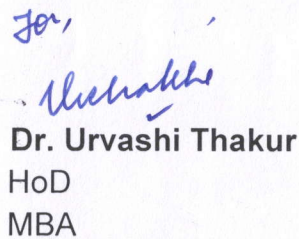 for,
Dr. Urvashi Thakur
HoD
MBA